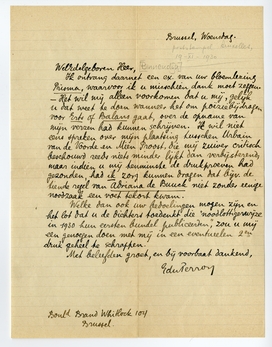 Brussel, Woensdag.
Weledelgeboren Heer,
Ik ontvang daarnet een ex. van uw bloemlezing
Prisma, waarvoor ik u misschien dank moet zeggen
- Het wil mij alleen voorkomen dat u mij, gelijk
u dat weet te doen wanneer het om poëziebijdragen
voor Erts of Balans gaat, over de opname van
mijn verzen had kunnen schrijven. Ik wil niet
eens spreken over mijn plaatsing tusschen Urbain
van de Voorde en Mien Proost, die mij zuiver critisch
beschouwd reeds niet minder lijkt dan verbijsterend,
maar indien u mij tenminste de drukproeven had
gezonden, had ik zorg kunnen dragen dat bijv. de
regel van Adriana de Buuck niet zonder eenige
noodzaak een voet tekort kwam.
Welke dan ook uw bedoelingen mogen zijn en
het lot dat u de dichters toedenkt die "noodlottigerwijze
in 1930 hun eersten bundel publiceerden", zou u mij
een genoegen doen met mij in een eventueelen 2en
druk geheel te schrappen.
Met beleefden groet, en bij voorbaat dankend,
EduPerron
Boulevd Brand Whitlock 104
Brussel.